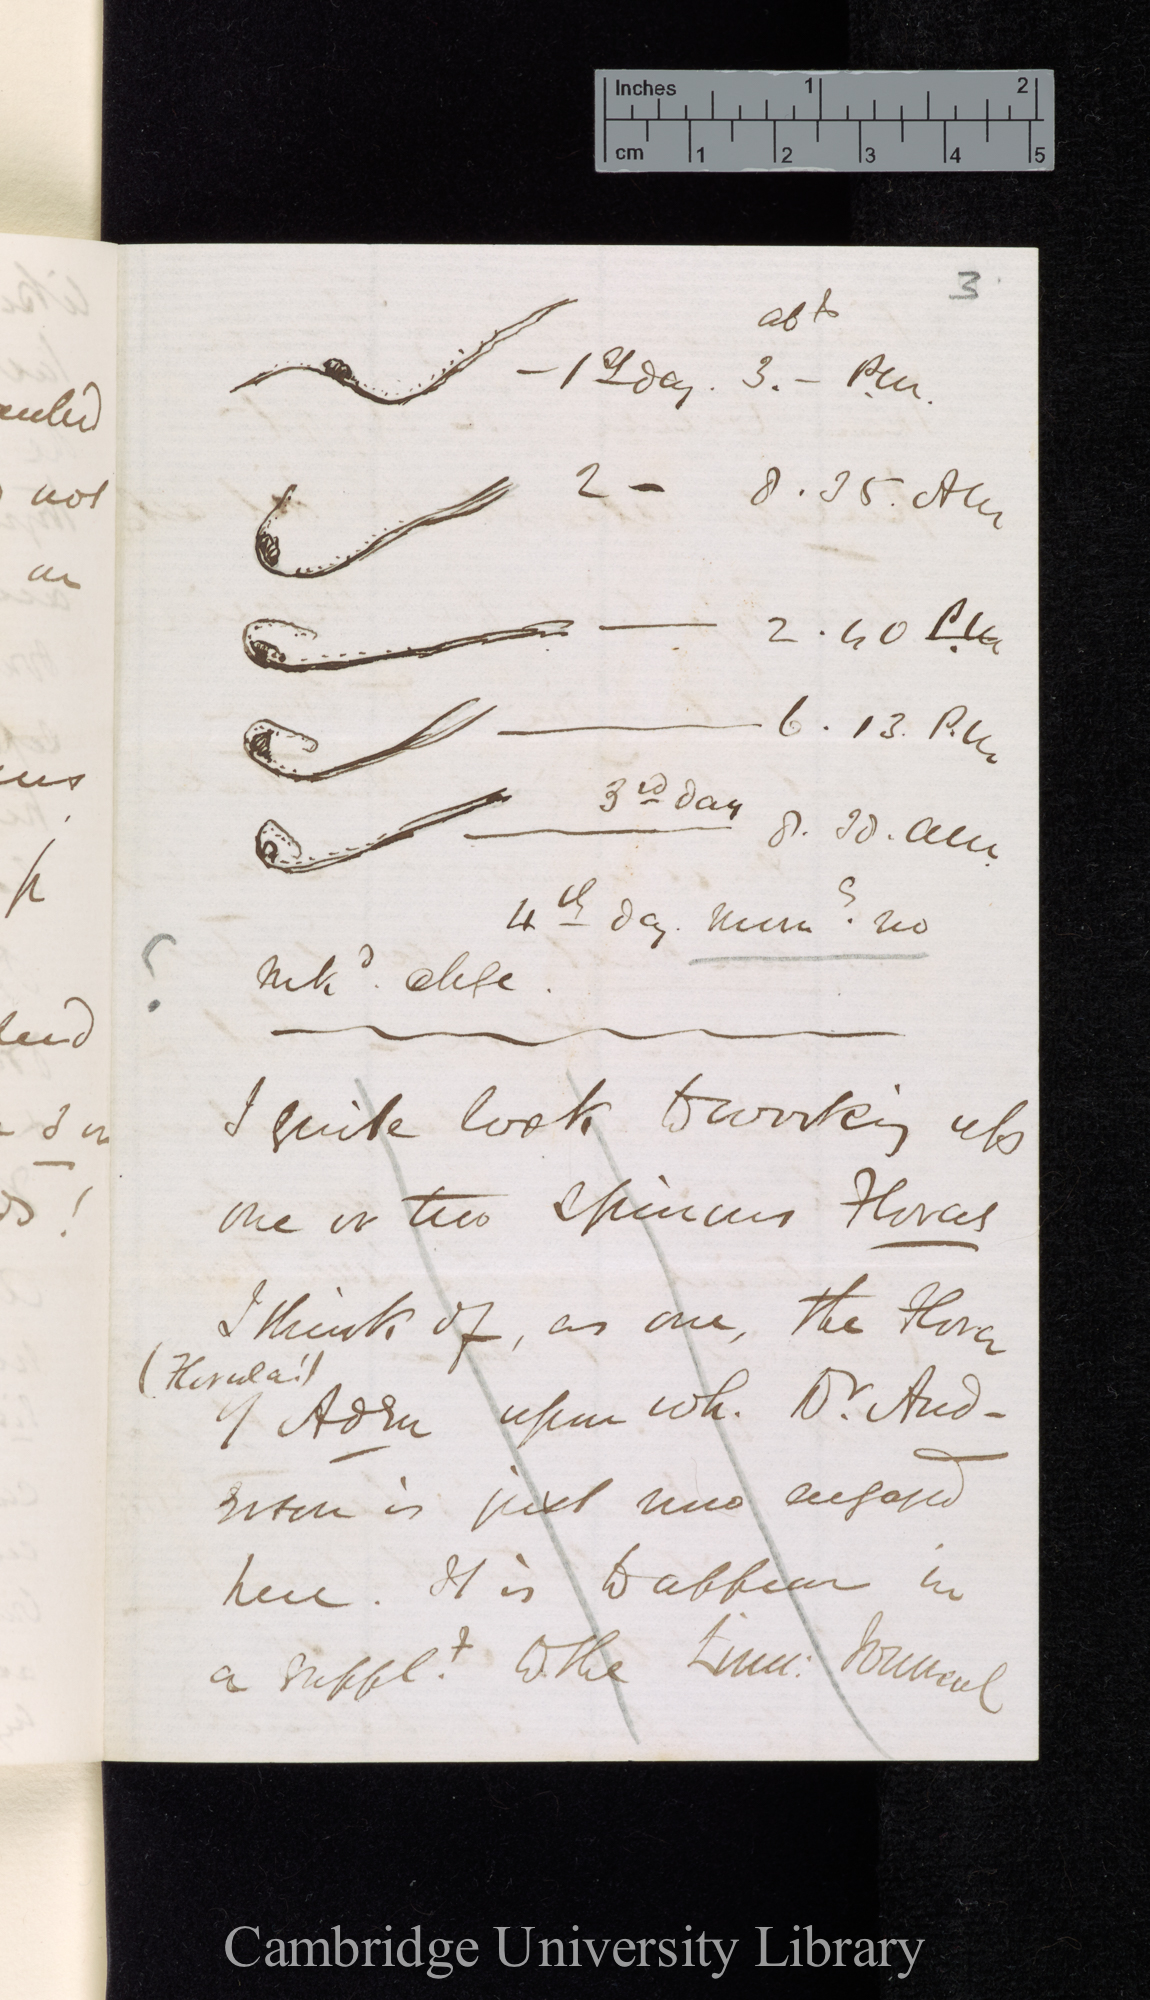 Inches 1 2
cm 1 2 3 4 5
3
abt
— 1st day. 3. — P.m.
2 — 8.35. Am
— 2.40 P.m
— 6.13. P.m
3rd day 8.30. am.
4th day. morng. no
mkd. chge.
?
I quite look to working up
one or two spinous Floras
I think of, as one, the Flora
(Florula!)
of Aden upon wh. Dr. And-
erson is just now engaged
here. It is to appear in
a supplt. to the Linn: Journal
not
!
Cambridge University Library